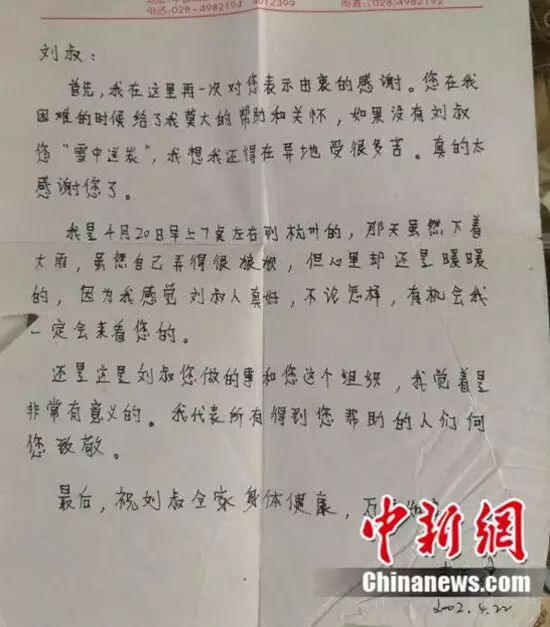 电话:028-4982194 4012399
刘叔：
首先，我在这里再一次对您表示由衷的感谢。您在我
困难的时候给了我莫大的帮助和关怀，如果没有刘叔
您“雪中送炭”，我想我还得在异地受很多苦。真的太
感谢您了。
我是4月20日早上7点左右到杭州的，那天虽然下着
大雨，虽您自己弄得很狼狈，但心里却还是暖暖
的，因为我感觉刘叔人真好，不论怎样，有机会我
一定会来看您的。
还是这是刘叔您做的事和您这个组织，我觉着是
非常有意义的。我代表所有得到您帮助的人们向
您致敬。
最后，祝刘叔全家身体健康，万
中新网
Chinanews.com
2002.4.22